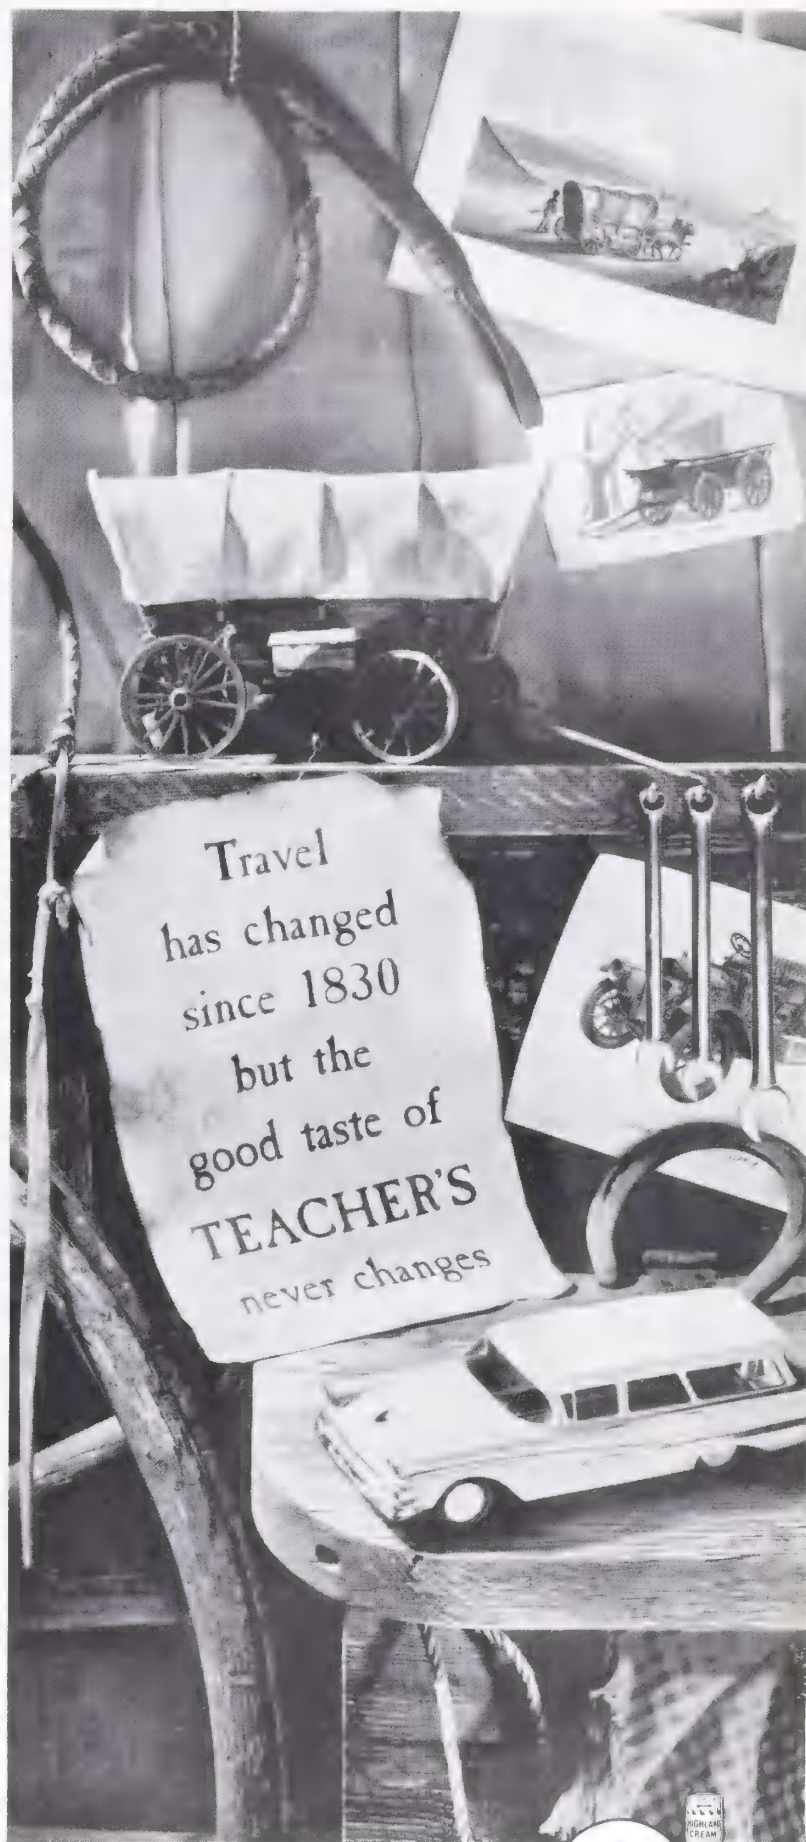 Travel
has changed
since 1830
but the
good taste of
TEACHER'S
never changes
HIGHLAND
CREAM